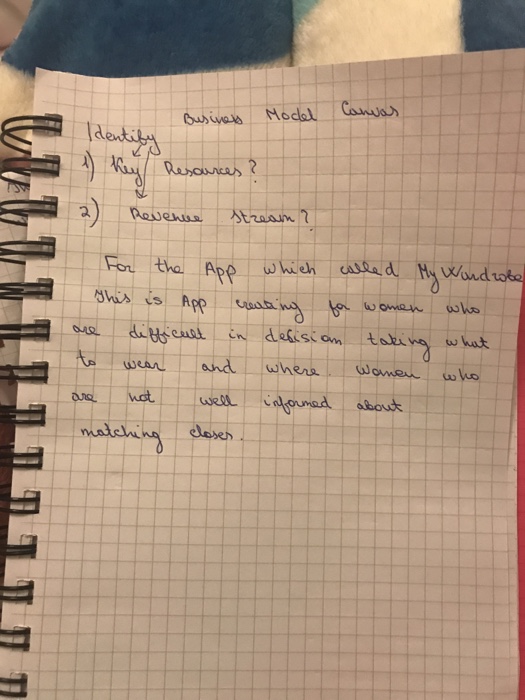 Business Model Canvas
Identify
1) Key Resources?
2) Revenue stream?
For the App which called My Wardrobe
This is App creating for women who
are difficult in defisiom taking what
to wear and where. Women who
are not well informed about
matching closer.